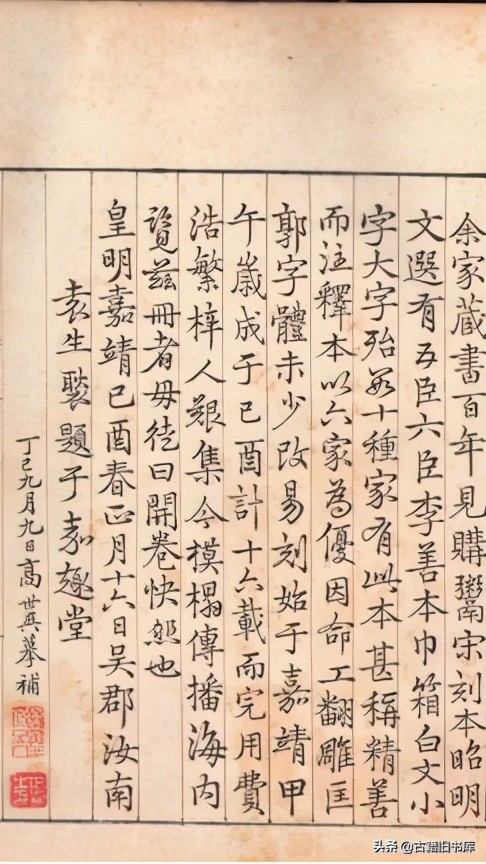 余家藏書百年見購鬻宋刻本昭明
文選有五臣六臣李善本巾箱白文小
字大字殆數十種家有此本甚稱精善
而注釋本以六家為優因命工翻雕匡
郭字體未少改易刻始于嘉靖甲
午歲成于己酉計十六載而完用費
浩繁梓人艱集今模搨傳播海内
覽茲冊者毋徒曰開卷快然也
皇明嘉靖己酉春正月十六日吳郡汝南
袁生褧題于嘉趣堂
丁巳九月九日高世異摹補
头条 @古籍旧书库